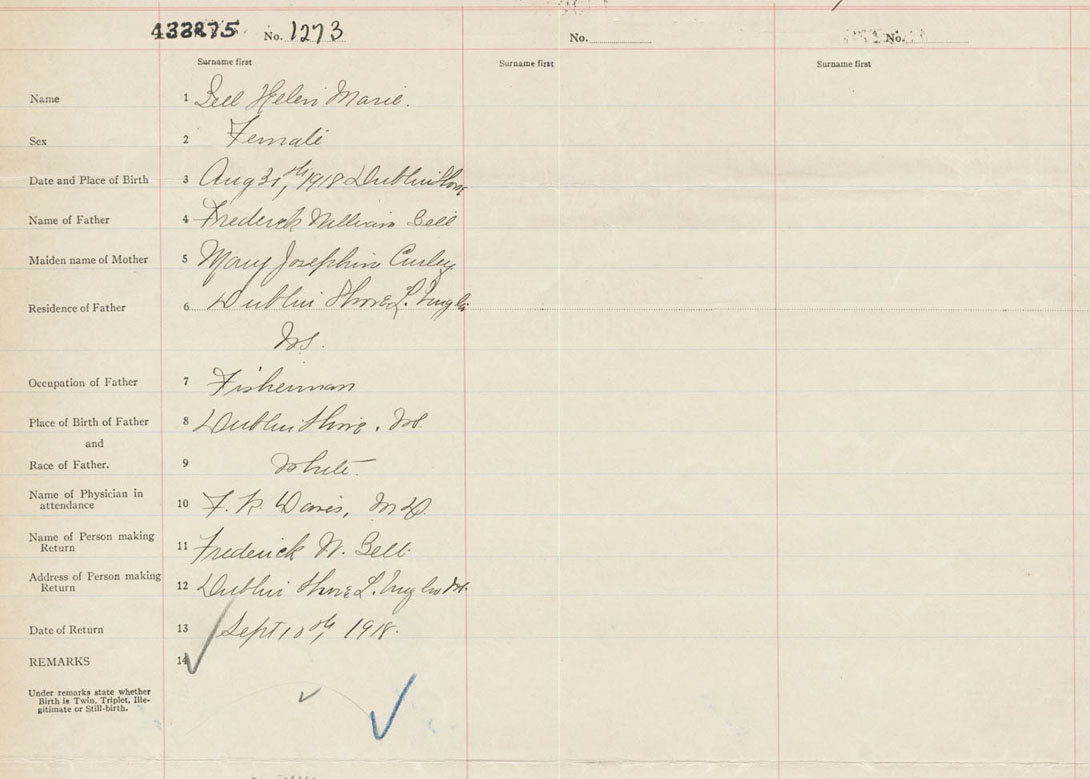 433875 No. 1273 No. No.
Surname first Surname first Surname first
Name 1 Bell Helen Marie.
Sex 2 Female
Date and Place of Birth 3 Aug 31, 1918 Dublin Shore
Name of Father 4 Frederick William Bell
Maiden name of Mother 5 Mary Josephine Curley
Residence of Father 6 Dublin Shore L.
NS.
Occupation of Father 7 Fisherman
Place of Birth of Father 8 Dublin Shore, NS.
and
Race of Father. 9 White
Name of Physician in
attendance 10 F. K. Davis, M.D.
Name of Person making
Return 11 Frederick W. Bell
Address of Person making
Return 12 Dublin Shore L. NS.
Date of Return 13 Sept 10th, 1918.
REMARKS 14
Under remarks state whether
Birth is Twin, Triplet, Ille-
gitimate or Still-birth.